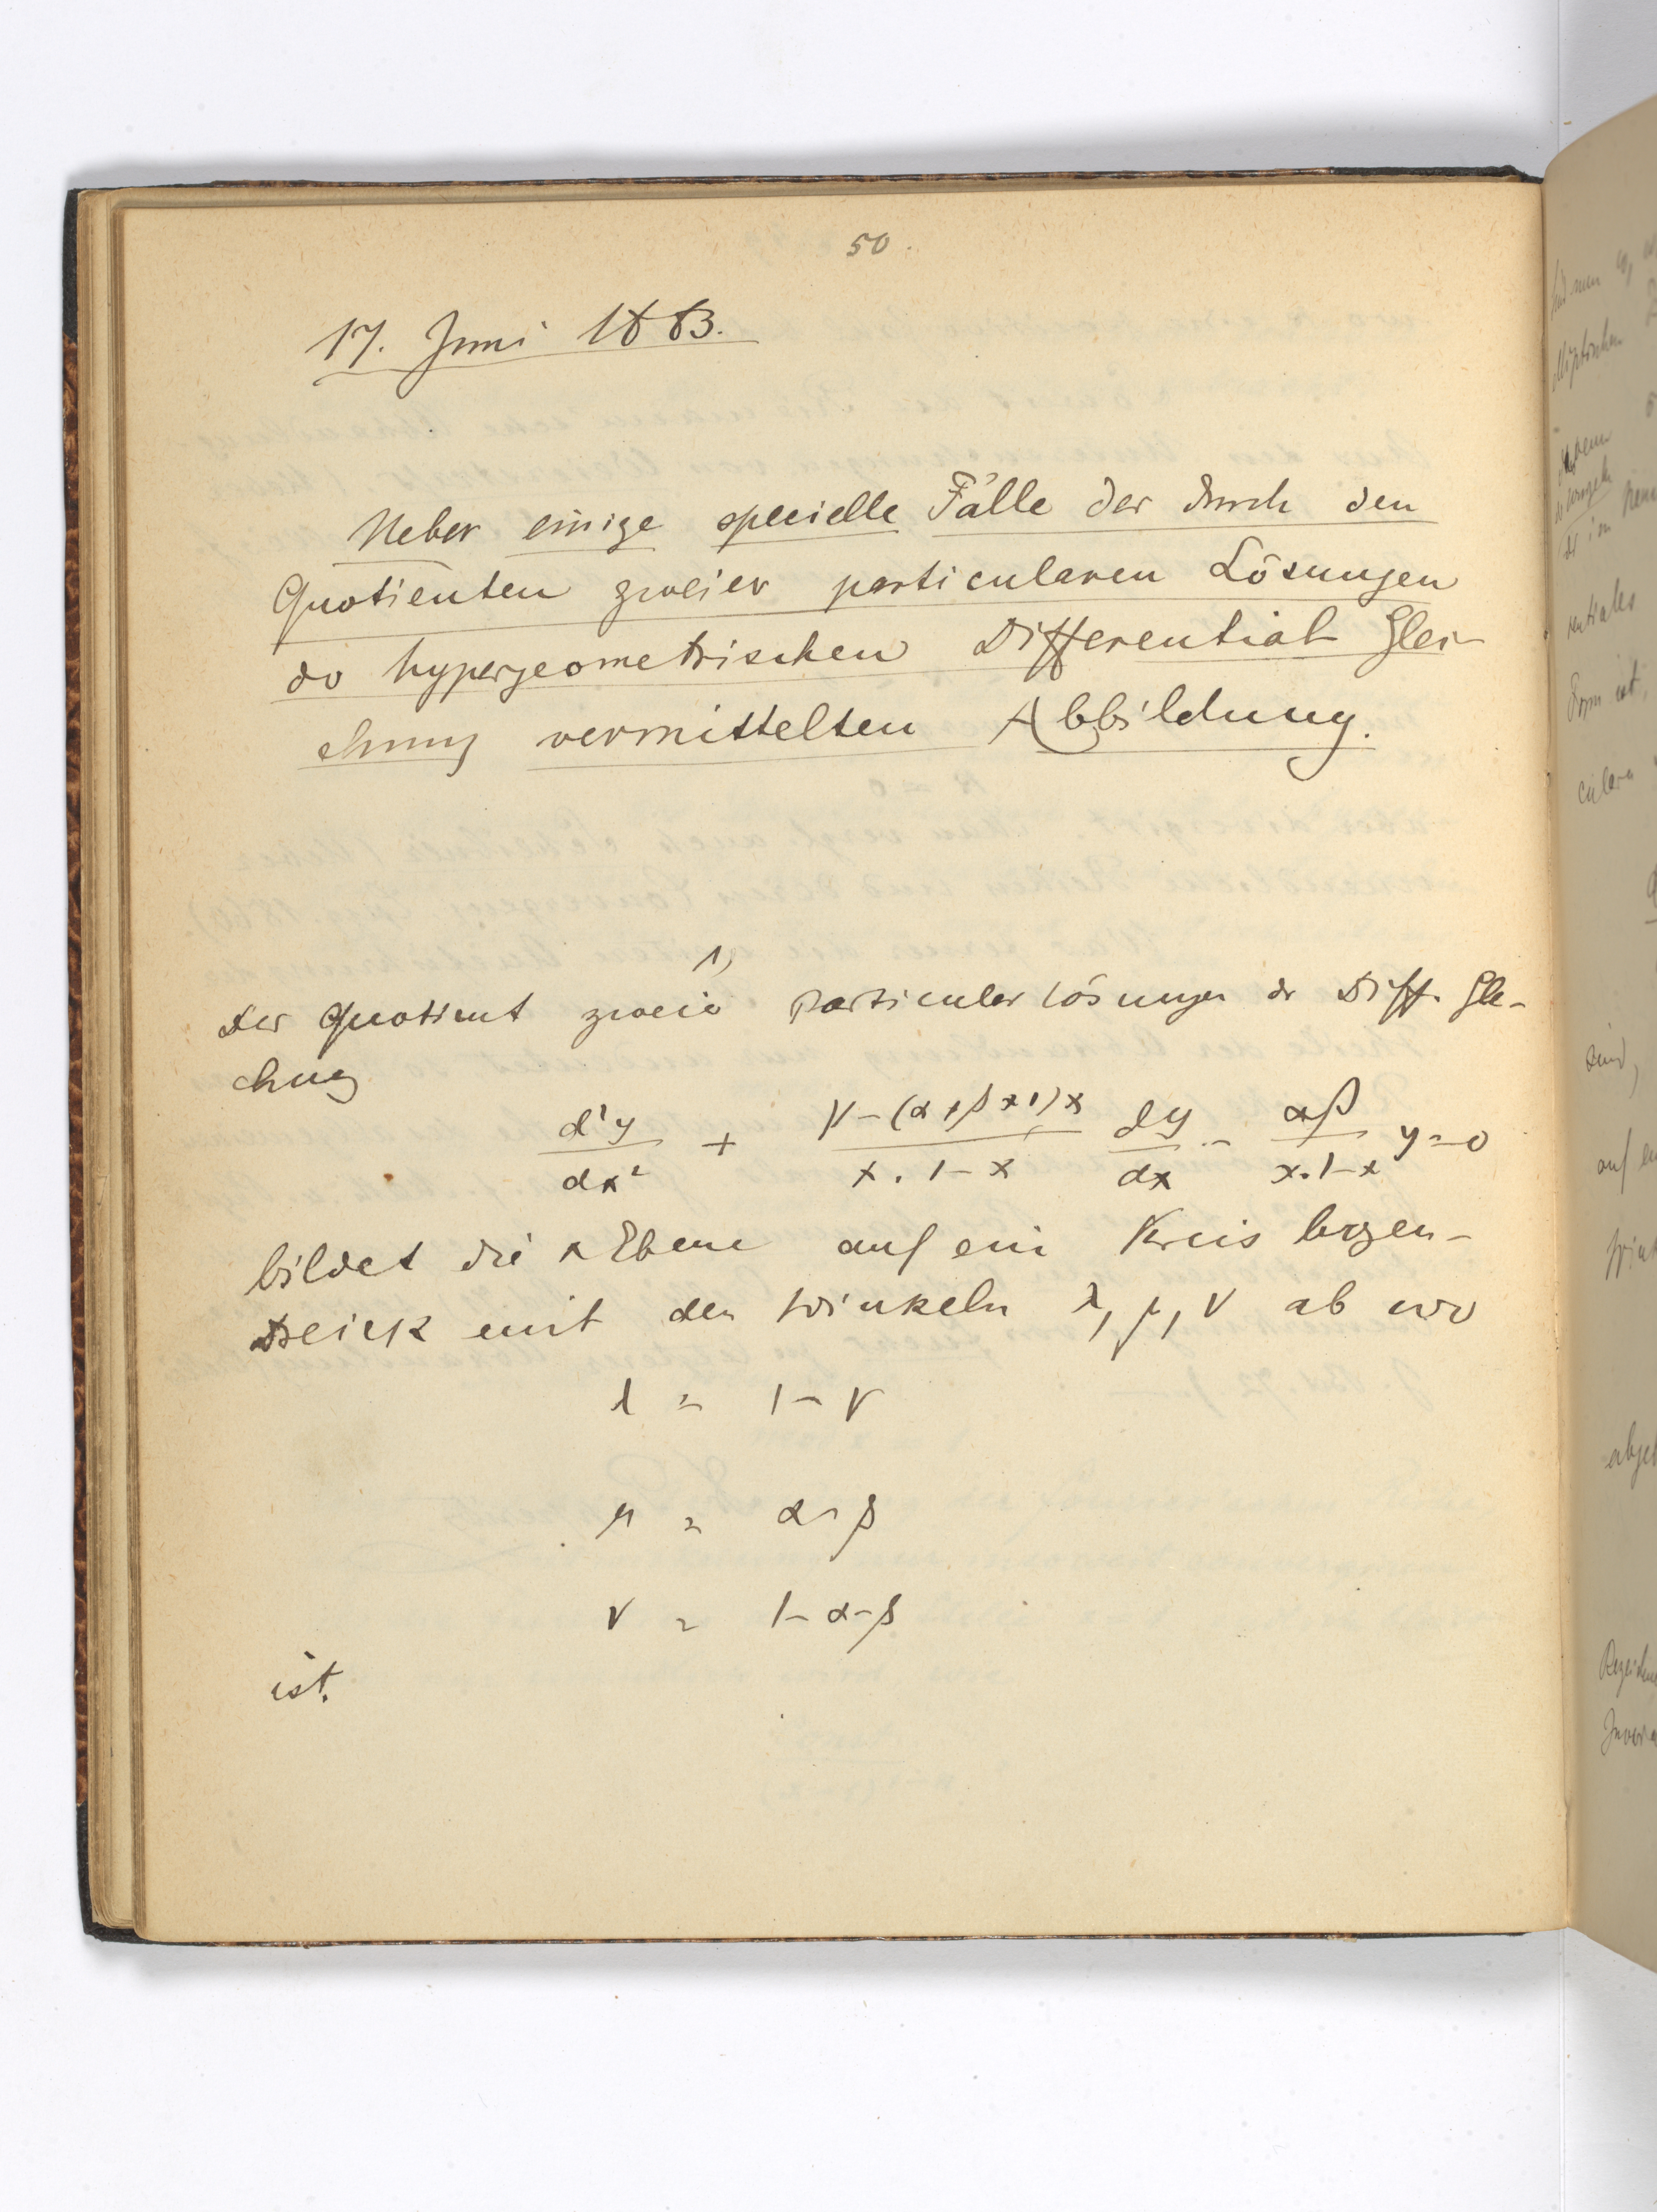 50.
17. Juni 1883.
Ueber einige specielle Fälle der durch den
Quotienten zweier particularen Lösungen
der hypergeometrischen Differential Glei-
chung vermittelten Abbildung.
1)
Der Quotient zweier Particularlösungen der Diff. Glei-
chung
d²y/dx² + γ-(α+β+1)x / x.1-x dy/dx - αβ / x.1-x y=0
bildet die x Ebene auf ein Kreisbogen-
dreieck mit den Winkeln λ, μ, ν ab wo
λ = 1-γ
μ = α-β
ν = γ-α-β
ist.